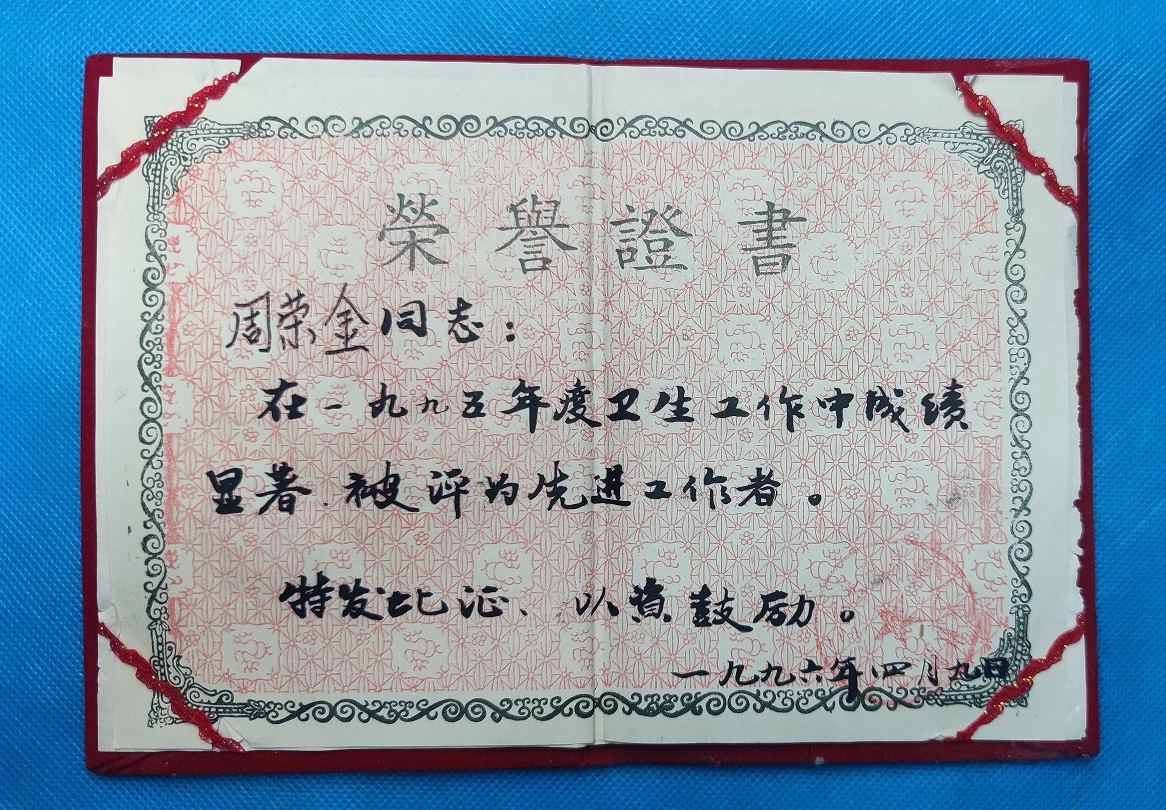 榮譽證書
周荣金同志：
在一九九五年度卫生工作中成绩
显著.被评为先进工作者。
特发此证、以资鼓励。
一九九六年四月九日